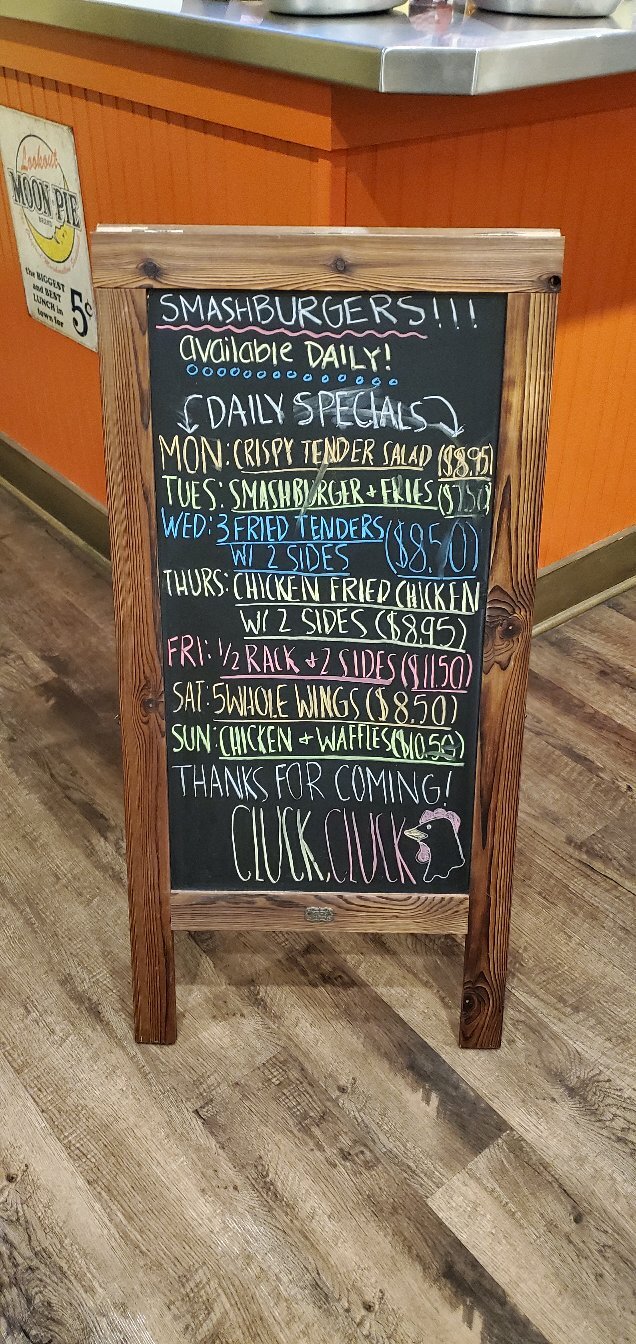 Lookout
MOON PIE
BRAND
the BIGGEST
and BEST
LUNCH in
town for
5¢
SMASHBURGERS!!!
available DAILY!
DAILY SPECIALS
MON: CRISPY TENDER SALAD ($8.95)
TUES: SMASHBURGER + FRIES ($7.50)
WED: 3 FRIED TENDERS
W/ 2 SIDES ($8.50)
THURS: CHICKEN FRIED CHICKEN
W/ 2 SIDES ($8.95)
FRI: 1/2 RACK + 2 SIDES ($11.50)
SAT: 5 WHOLE WINGS ($8.50)
SUN: CHICKEN + WAFFLES ($10.50)
THANKS FOR COMING!
CLUCK, CLUCK